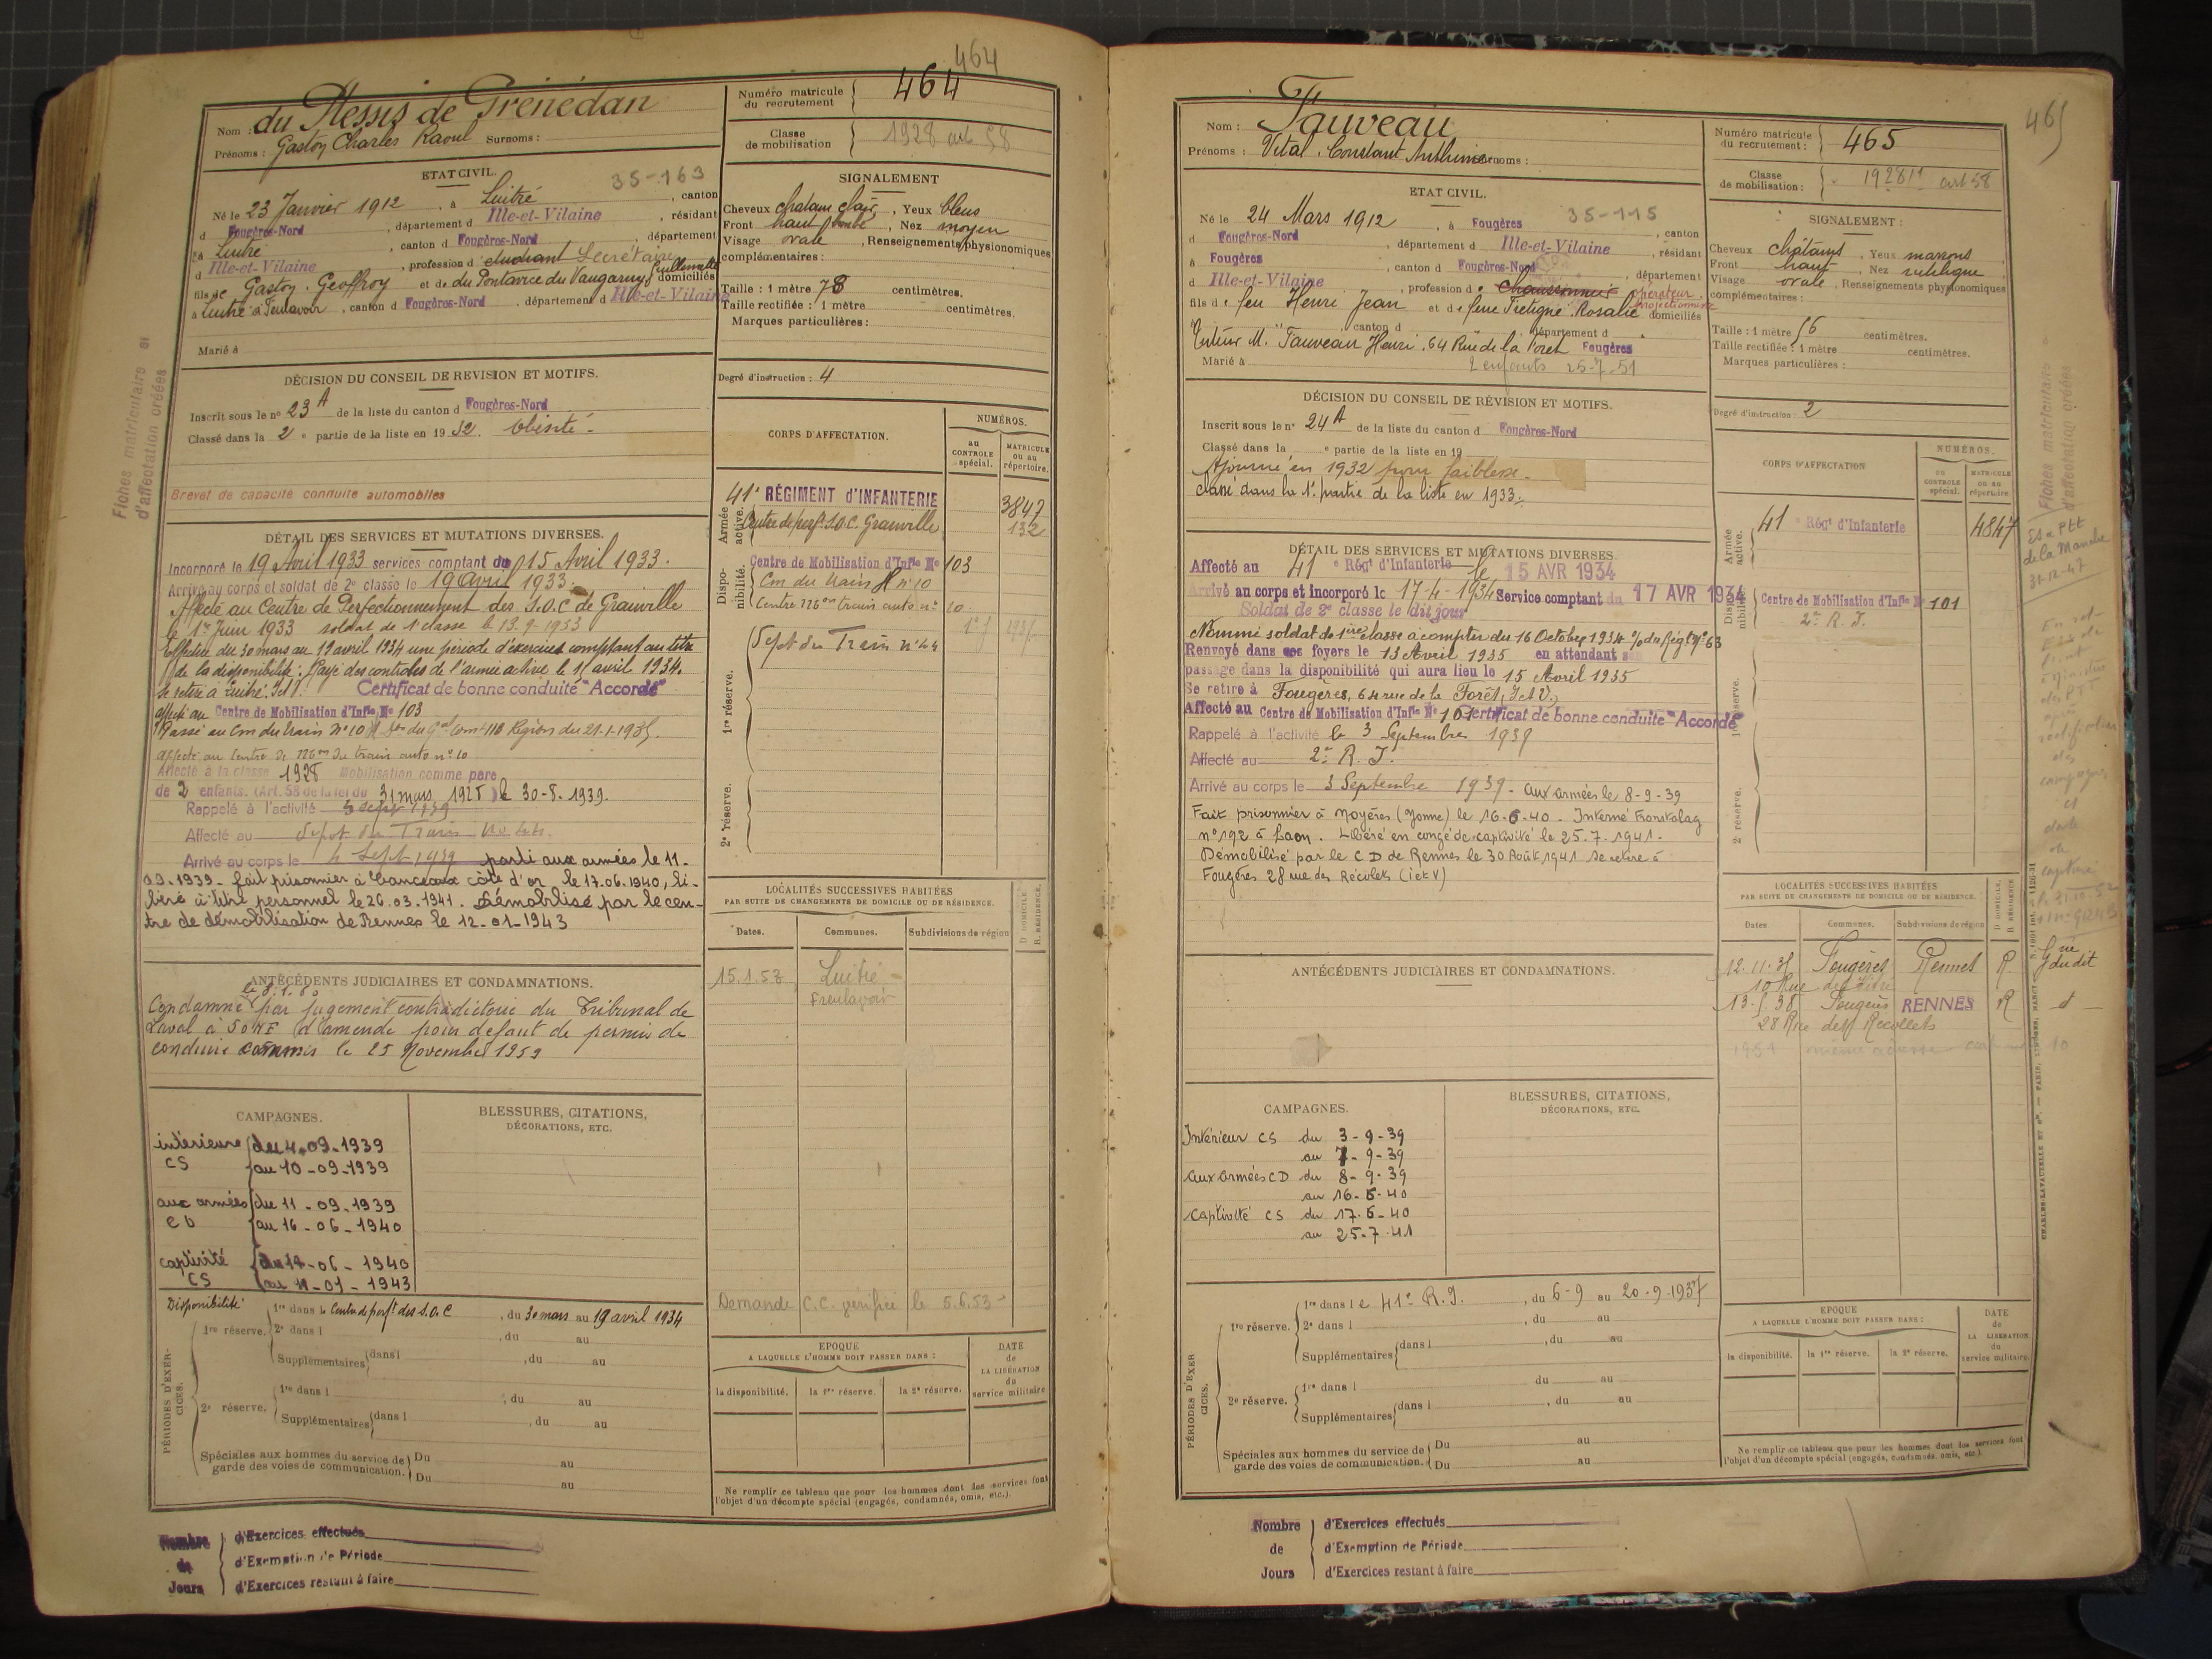 464
Nom : du Plessis de Grénédan
Prénoms : Gaston Charles Raoul Surnoms :
Numéro matricule du recrutement 464
Classe de mobilisation 1928 art 58
ETAT CIVIL.
35-163
Né le 23 Janvier 1912, à Luitré, canton
d Fougères-Nord, département d Ille-et-Vilaine, résidant
à Luitré, canton d Fougères-Nord, département
d Ille-et-Vilaine, profession d étudiant Secrétaire
fils de Gaston. Geoffroy et de du Pontavice du Vaugarny, Guillemette domiciliés
à Luitré à Feulavoir, canton d Fougères-Nord, département d Ille-et-Vilaine
Marié à
SIGNALEMENT
Cheveux chatain clair, Yeux bleus
Front haut bombé, Nez moyen
Visage ovale, Renseignements physionomiques
complémentaires :
Taille : 1 mètre 78 centimètres.
Taille rectifiée : 1 mètre centimètres.
Marques particulières :
Degré d'instruction : 4
DÉCISION DU CONSEIL DE REVISION ET MOTIFS.
Inscrit sous le nº 23 A de la liste du canton d Fougères-Nord
Classé dans la 2e partie de la liste en 1932. Obésité -
Brevet de capacité conduite automobiles
Fiches matriculaire et
d'affectation créées
CORPS D'AFFECTATION.
NUMÉROS.
au CONTROLE spécial.
MATRICULE ou au répertoire.
Armée active.
41e RÉGIMENT d'INFANTERIE 3847
Centre de perft S.O.C. Granville 132
Disponibilité.
Centre de Mobilisation d'Infie Nº 103
Cm du train nº 10
Centre mon train auto nº 10
1re réserve.
Dépôt du Train nº 44
2e réserve.
DÉTAIL DES SERVICES ET MUTATIONS DIVERSES.
Incorporé le 19 Avril 1933 services comptant du 15 Avril 1933.
Arrivé au corps et soldat de 2e classe le 19 avril 1933.
Affecté au Centre de Perfectionnement des S.O.C de Granville
le 1er Juin 1933 soldat de 1e classe le 13-9-1933
Effectué du 30 mars au 19 avril 1934 une période d'exercices comptant au titre
de la disponibilité. Rayé des controles de l'armée active le 15 avril 1934.
Se retire à Luitré. I et V. Certificat de bonne conduite "Accordé"
affecté au Centre de Mobilisation d'Infie Nº 103
Passé au Cm du train nº 10
affecté au Centre de mon du train auto nº 10
Affecté à la classe 1928 Mobilisation comme père
de 2 enfants. (Art. 58 de la loi du 31 mars 1928) le 30-8-1939.
Rappelé à l'activité 3 sept 1939
Affecté au Dépôt du Train No 44.
Arrivé au corps le 4 Sept 1939 parti aux armées le 11-
09-1939 - fait prisonnier à Vanceaux côte d'or le 17.06.1940, li-
béré à titre personnel le 26.03.1941. Démobilisé par le cen-
tre de démobilisation de Rennes le 12-01-1943
ANTÉCÉDENTS JUDICIAIRES ET CONDAMNATIONS.
le 8.1.60
Condamné par jugement contradictoire du Tribunal de
Laval à 50 NF d'amende pour défaut de permis de
conduire commis le 25 Novembre 1959
LOCALITÉS SUCCESSIVES HABITÉES
PAR SUITE DE CHANGEMENTS DE DOMICILE OU DE RÉSIDENCE.
Dates. Communes. Subdivisions de région D DOMICILE R. RÉSIDENCE.
15.1.53 Luitré -
Feulavoir
Demande C.C. vérifiée le 5.6.53
CAMPAGNES.
intérieure du 4-09-1939
CS au 10-09-1939
aux armées du 11-09-1939
CD au 16-06-1940
captivité du 17-06-1940
CS au 11-01-1943
BLESSURES, CITATIONS, DÉCORATIONS, ETC.
PÉRIODES D'EXERCICES.
Disponibilité 1re dans le Centre de perft des S.O.C, du 30 mars au 19 avril 1934
1re réserve. 2e dans l , du au
Supplémentaires dans l , du au
2e réserve. 1re dans l , du au
Supplémentaires dans l , du au
Spéciales aux hommes du service de Du au
garde des voies de communication. Du au
EPOQUE
A LAQUELLE L'HOMME DOIT PASSER DANS :
la disponibilité. la 1re réserve. la 2e réserve.
DATE de LA LIBÉRATION du service militaire
Ne remplir ce tableau que pour les hommes dont les services font
l'objet d'un décompte spécial (engagés, condamnés, omis, etc.).
Nombre de Jours
d'Exercices effectués
d'Exemption de Période
d'Exercices restant à faire
465
Nom : Fauveau
Prénoms : Vital, Constant Anthime Surnoms :
Numéro matricule du recrutement : 465
Classe de mobilisation : 1928 art 58
ETAT CIVIL.
35-115
Né le 24 Mars 1912, à Fougères, canton
d Fougères-Nord, département d Ille-et-Vilaine, résidant
à Fougères, canton d Fougères-Nord, département
d Ille-et-Vilaine, profession d Chaussonnier opérateur projectionniste
fils de feu Henri Jean et de feue Fretigné Rosalie domiciliés
canton d département d
Tuteur M. Fauveau Henri. 64 Rue de la Foret Fougères
Marié à 2 enfants 25-7-51
SIGNALEMENT :
Cheveux châtains, Yeux marrons
Front haut, Nez rectiligne
Visage ovale, Renseignements physionomiques
complémentaires :
Taille : 1 mètre 56 centimètres.
Taille rectifiée : 1 mètre centimètres.
Marques particulières :
Degré d'instruction : 2
DÉCISION DU CONSEIL DE RÉVISION ET MOTIFS.
Inscrit sous le nº 24 A de la liste du canton d Fougères-Nord
Classé dans la e partie de la liste en 19
Ajourné en 1932 pour faiblesse -
classé dans la 1e partie de la liste en 1933.
CORPS D'AFFECTATION
NUMÉROS.
au CONTROLE spécial.
MATRICULE ou au répertoire.
Armée active.
41e Régt d'Infanterie 4847
Disponibilité
Centre de Mobilisation d'Infie Nº 101
2e R. I.
1re réserve.
2e réserve.
Fiches matriculaire
d'affectation créées
Es à PTT
de la Manche
31-12-47
DÉTAIL DES SERVICES ET MUTATIONS DIVERSES.
Affecté au 41e Régt d'Infanterie le 15 AVR 1934
Arrivé au corps et incorporé le 17-4-1934 Service comptant du 17 AVR 1934
Soldat de 2e classe le dit jour
Nommé soldat de 1ère classe à compter du 16 Octobre 1934 O/ du Régt Nº 63
Renvoyé dans ses foyers le 13 Avril 1935 en attendant son
passage dans la disponibilité qui aura lieu le 15 Avril 1935
Se retire à Fougères, 64 rue de la Forêt, I et V.
Affecté au Centre de Mobilisation d'Infie Nº 101 Certificat de bonne conduite "Accordé"
Rappelé à l'activité le 3 Septembre 1939
Affecté au 2e R. I.
Arrivé au corps le 3 Septembre 1939 - aux armées le 8-9-39
Fait prisonnier à Noyères (Yonne) le 16-6-40. Interné Fronstalag
nº 192 à Laon. Libéré en congé de captivité le 25.7.1941.
Démobilisé par le C D de Rennes le 30 Août 1941 se retire à
Fougères 28 rue des Récolets (I et V)
ANTÉCÉDENTS JUDICIAIRES ET CONDAMNATIONS.
LOCALITÉS SUCCESSIVES HABITÉES
PAR SUITE DE CHANGEMENTS DE DOMICILE OU DE RÉSIDENCE.
Dates. Communes. Subdivisions de région D DOMICILE, R RÉSIDENCE
12.11.35 Fougères Rennes R
10 Rue de
13-5-38 Fougères RENNES R
28 Rue des Récollets
CAMPAGNES.
Intérieur CS du 3-9-39
au 7-9-39
aux armées CD du 8-9-39
au 16-6-40
captivité CS du 17-6-40
au 25-7-41
BLESSURES, CITATIONS, DÉCORATIONS, ETC.
PÉRIODES D'EXERCICES.
1re réserve. 1re dans le 41e R.I., du 6-9 au 20-9-1937
2e dans l , du au
Supplémentaires dans l , du au
2e réserve. 1re dans l du au
Supplémentaires dans l , du au
Spéciales aux hommes du service de Du au
garde des voies de communication. Du au
EPOQUE
A LAQUELLE L'HOMME DOIT PASSER DANS :
la disponibilité. la 1re réserve. la 2e réserve.
DATE de LA LIBÉRATION du service militaire.
Ne remplir ce tableau que pour les hommes dont les services font
l'objet d'un décompte spécial (engagés, condamnés, omis, etc.).
Nombre de Jours
d'Exercices effectués
d'Exemption de Période
d'Exercices restant à faire